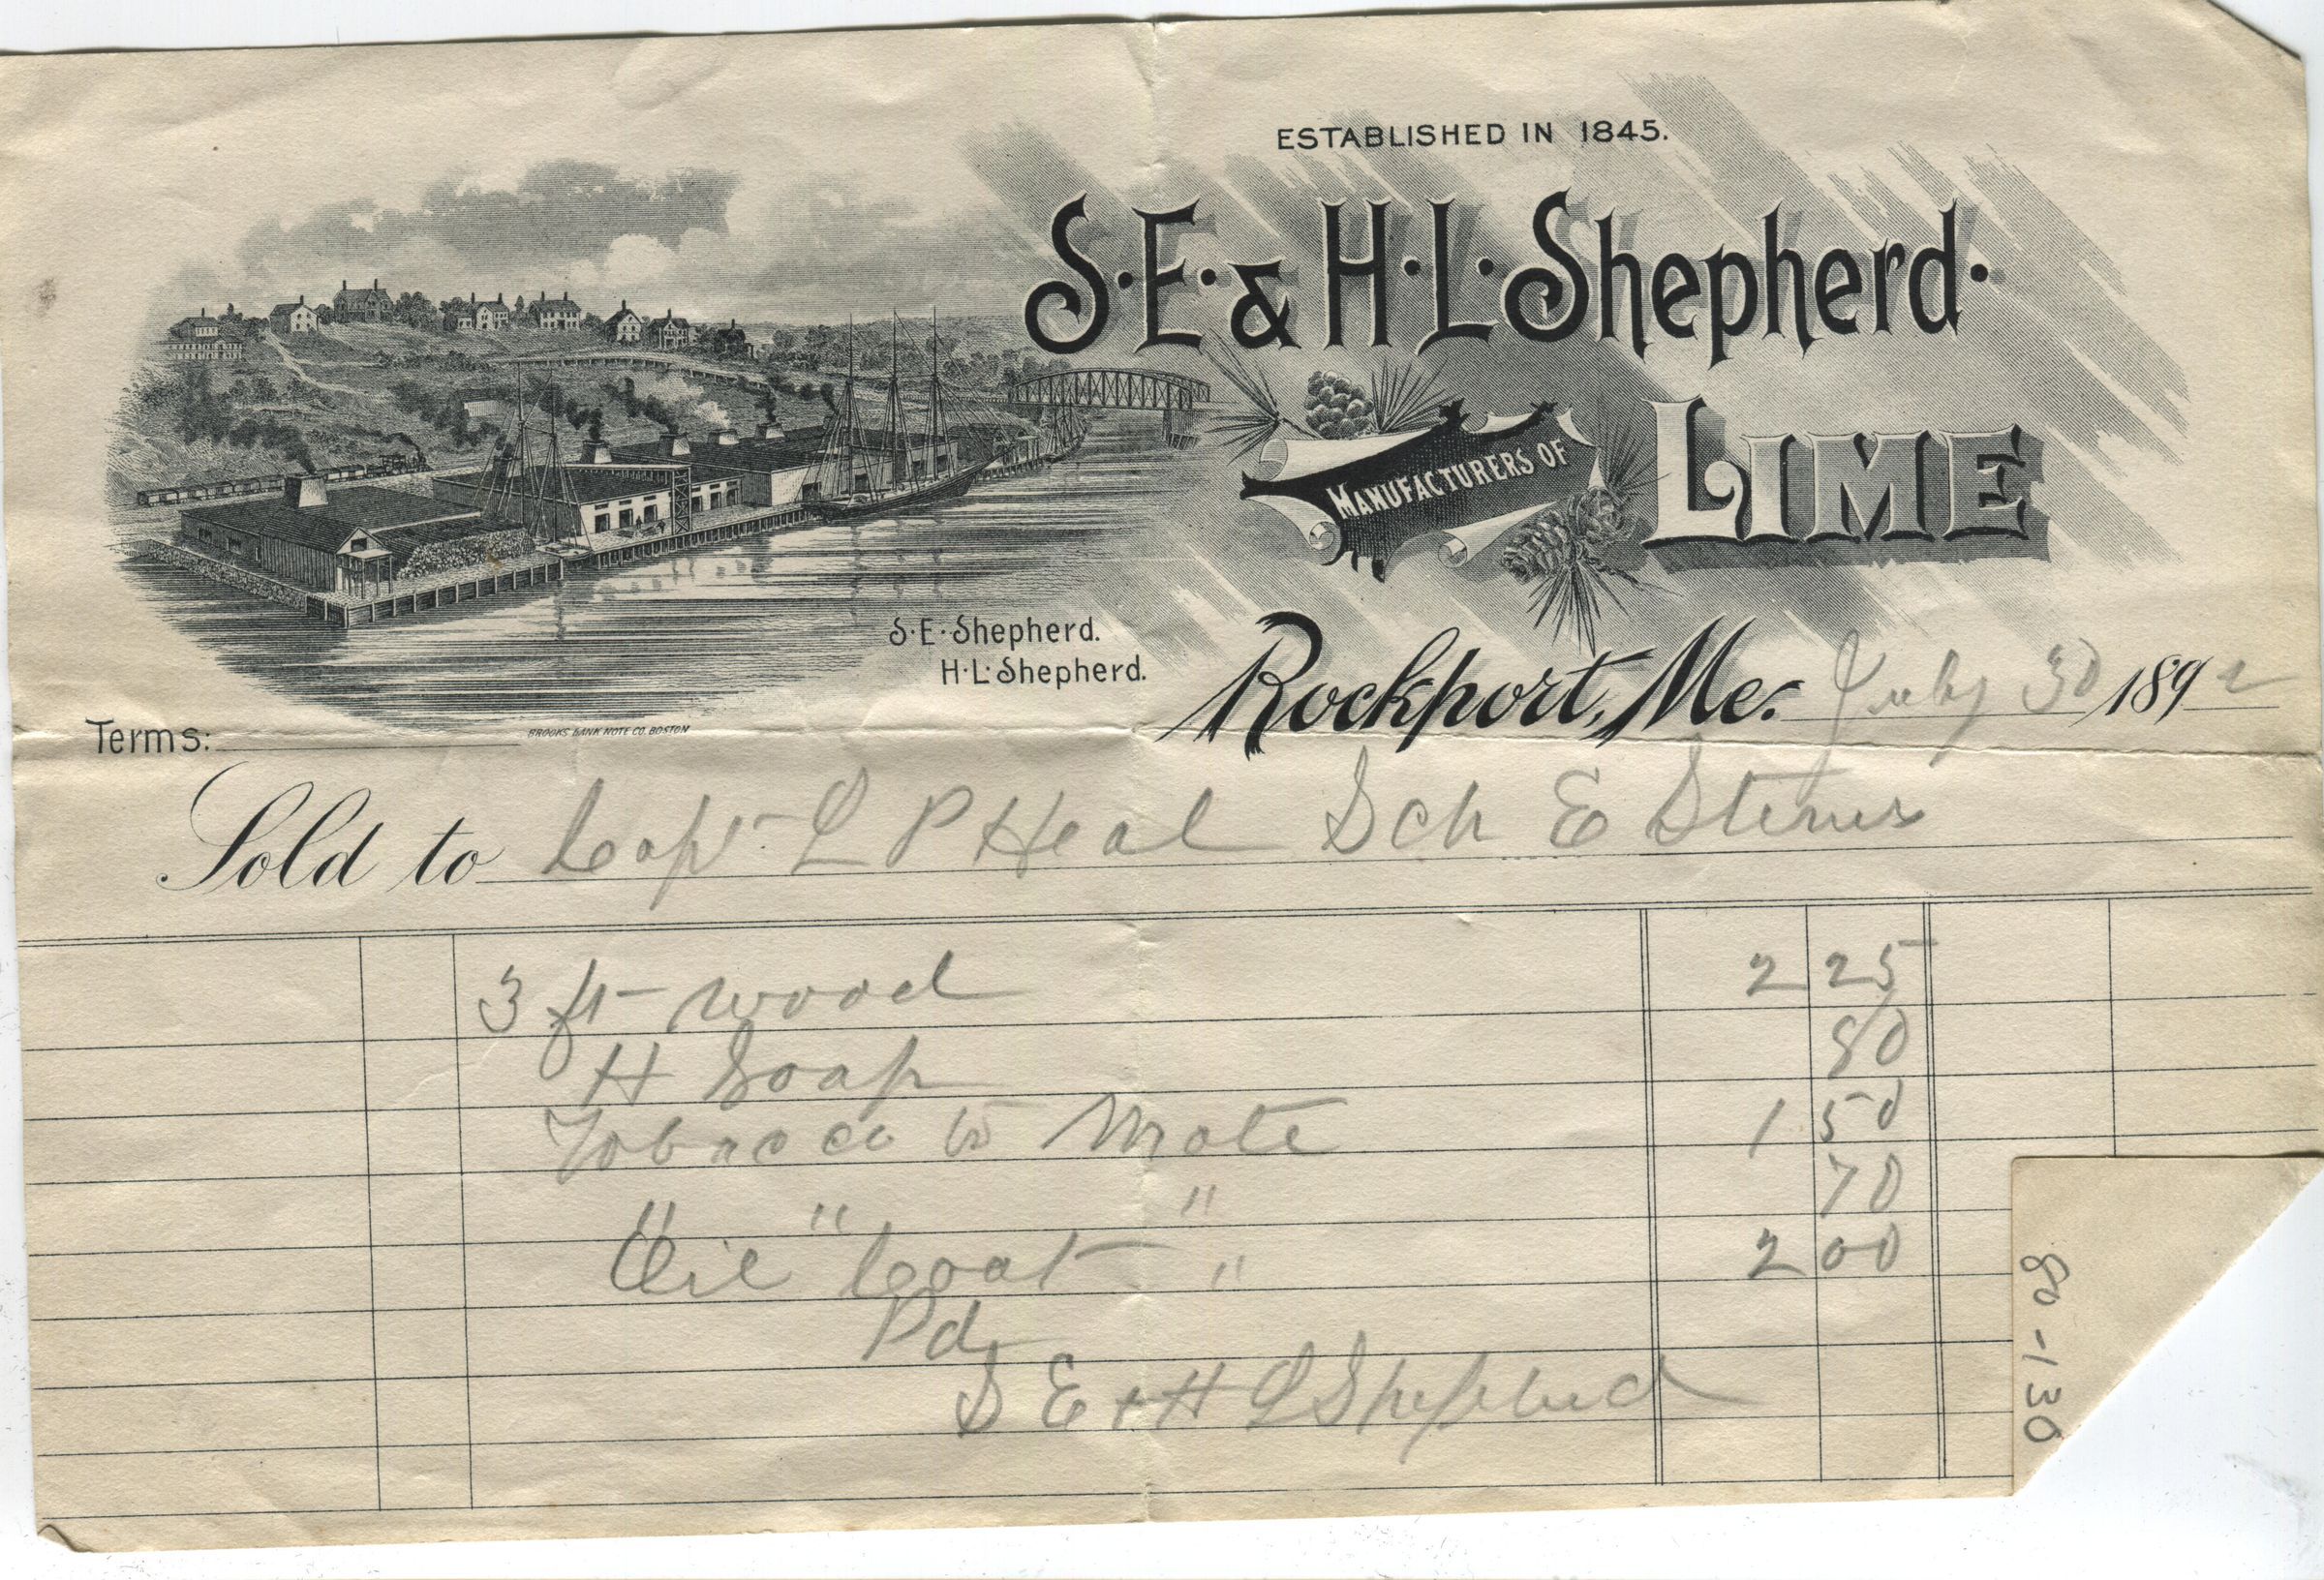 ESTABLISHED IN 1845.
S. E. & H. L. Shepherd.
MANUFACTURERS OF LIME
S. E. Shepherd.
H. L. Shepherd.
Rockport, Me. July 30 1892
Terms:
BROOKS BANK NOTE CO. BOSTON
Sold to Capt L P Heal Sch E
3 ft wood 2 25
H Soap 80
Tobacco to Mate 1 50
" " " 70
Oil Coat " 2 00
Pd
S E + H L Shepherd
80-130